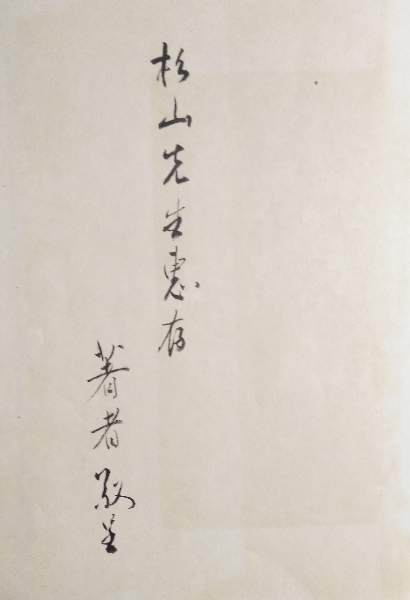 杉山先生惠存
著者敬呈